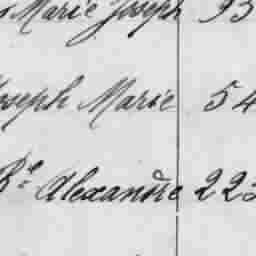 Marie Joseph 93
Joseph Marie 54
Bte Alexandre 223